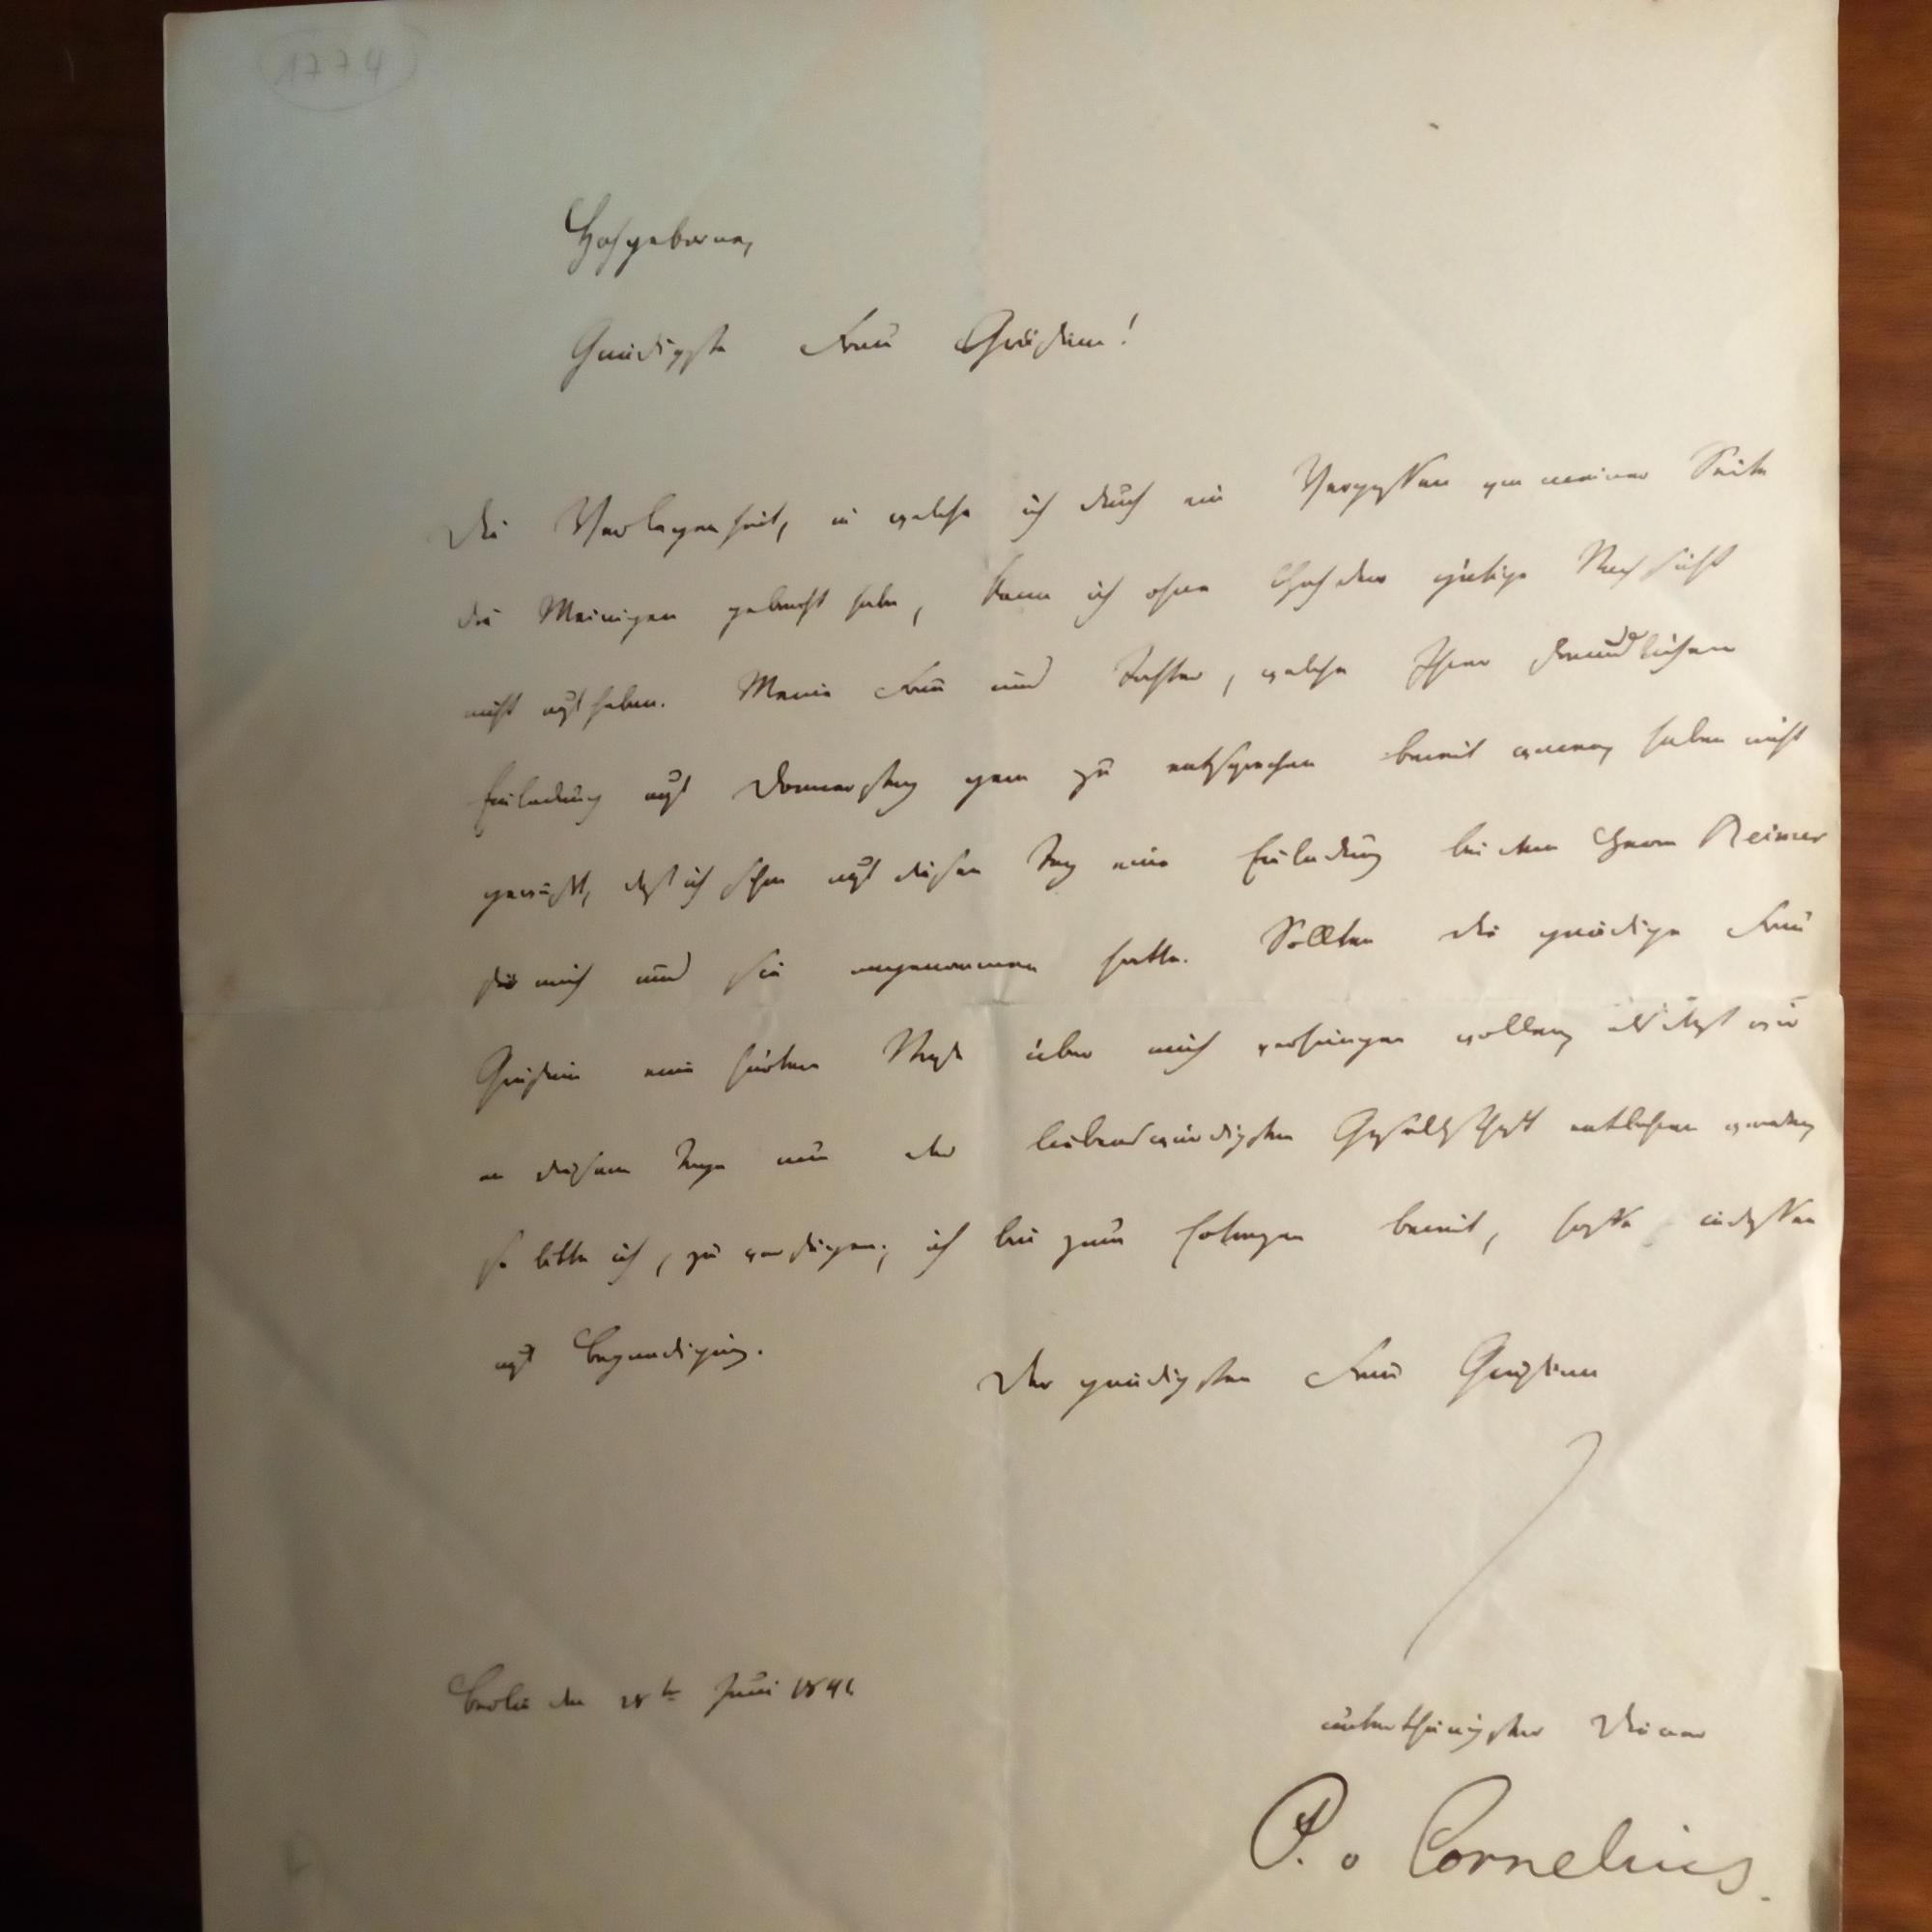 1774
Hochgeborne,
Gnädigste Frau Gräfinn!
Die Verlegenheit, in welche ich durch ein Vergessen von meiner Seite
die Meinigen gebracht habe, kann ich ohne Hochdero gütige Nachsicht
nicht aufheben. Meine Frau und Tochter, welche Ihrer freundlichen
Einladung auf Donnerstag gern zu entsprechen bereit waren, haben nicht
gewußt, daß ich schon auf diesen Tag eine Einladung bei dem Herrn Reimer
für mich und sie angenommen hatte. Sollten die gnädige Frau
Gräfinn eine härtere Strafe über mich verhängen wollen, als daß wir
an diesem Tage nun der liebenswürdigsten Gesellschaft entbehren werden,
so bitte ich, zu verfügen; ich bin zum Ertragen bereit, hoffe indessen
auf Begnadigung.
Der gnädigsten Frau Gräfinn
Berlin den Juni
unterthänigster Diener
P. v Cornelius.